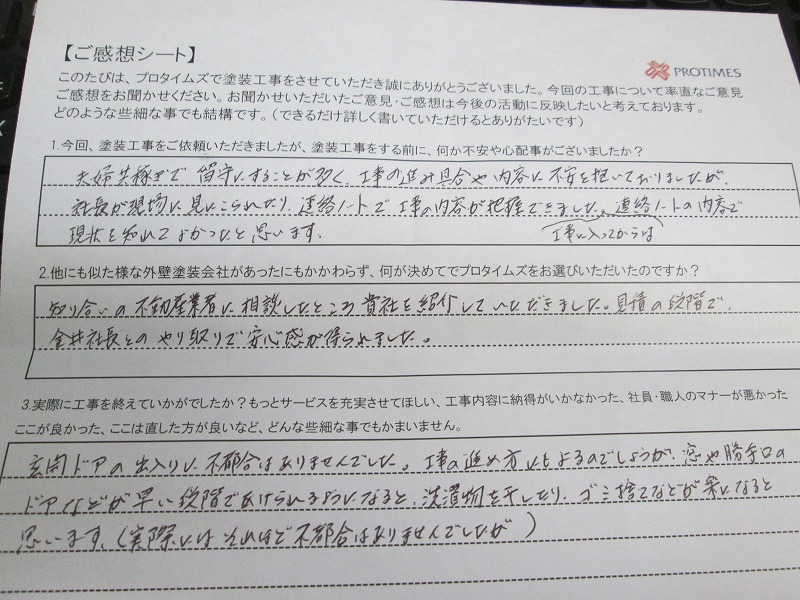 【ご感想シート】
PROTIMES
このたびは、プロタイムズで塗装工事をさせていただき誠にありがとうございました。今回の工事について率直なご意見
ご感想をお聞かせください。お聞かせいただいたご意見・ご感想は今後の活動に反映したいと考えております。
どのような些細な事でも結構です。（できるだけ詳しく書いていただけるとありがたいです）
1.今回、塗装工事をご依頼いただきましたが、塗装工事をする前に、何か不安や心配事がございましたか？
夫婦共稼ぎで留守にすることが多く、工事の進み具合や内容に不安を抱いておりましたが、
社長が現場に見にこられたり、連絡ノートで工事の内容が把握できました。連絡ノートの内容で
現状を知れてよかったと思います。
（工事に入ってからは
2.他にも似た様な外壁塗装会社があったにもかかわらず、何が決めてでプロタイムズをお選びいただいたのですか？
知り合いの不動産業者に相談したところ貴社を紹介していただきました。見積の段階で、
金井社長とのやり取りで安心感が得られました。
3.実際に工事を終えていかがでしたか？もっとサービスを充実させてほしい、工事内容に納得がいかなかった、社員・職人のマナーが悪かった
ここが良かった、ここは直した方が良いなど、どんな些細な事でもかまいません。
玄関ドアの出入りに不都合はありませんでした。工事の進め方にもよるのでしょうが、窓や勝手口の
ドアなどが早い段階であけられるようになると、洗濯物を干したり、ゴミ捨てなどが楽になると
思います。（実際にはそれほど不都合はありませんでしたが）